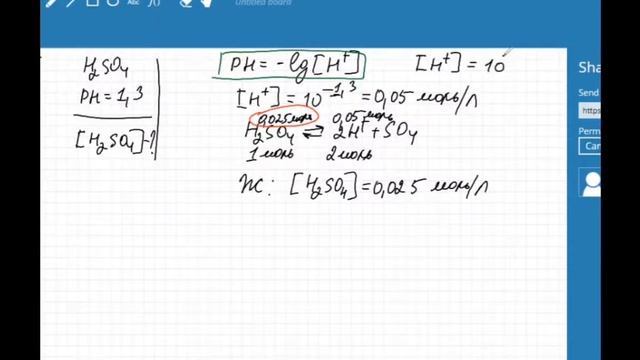 Untitled board
Abc
Sha
Send
https
Perm
Can
H₂SO₄
PH = 1,3
[H₂SO₄] - ?
PH = -lg[H⁺]
[H⁺] = 10
[H⁺] = 10⁻¹,³ = 0,05 моль/л
0,025 моль 0,05 моль
H₂SO₄ ⇌ 2H⁺ + SO₄
1 моль 2 моль
Ж: [H₂SO₄] = 0,025 моль/л